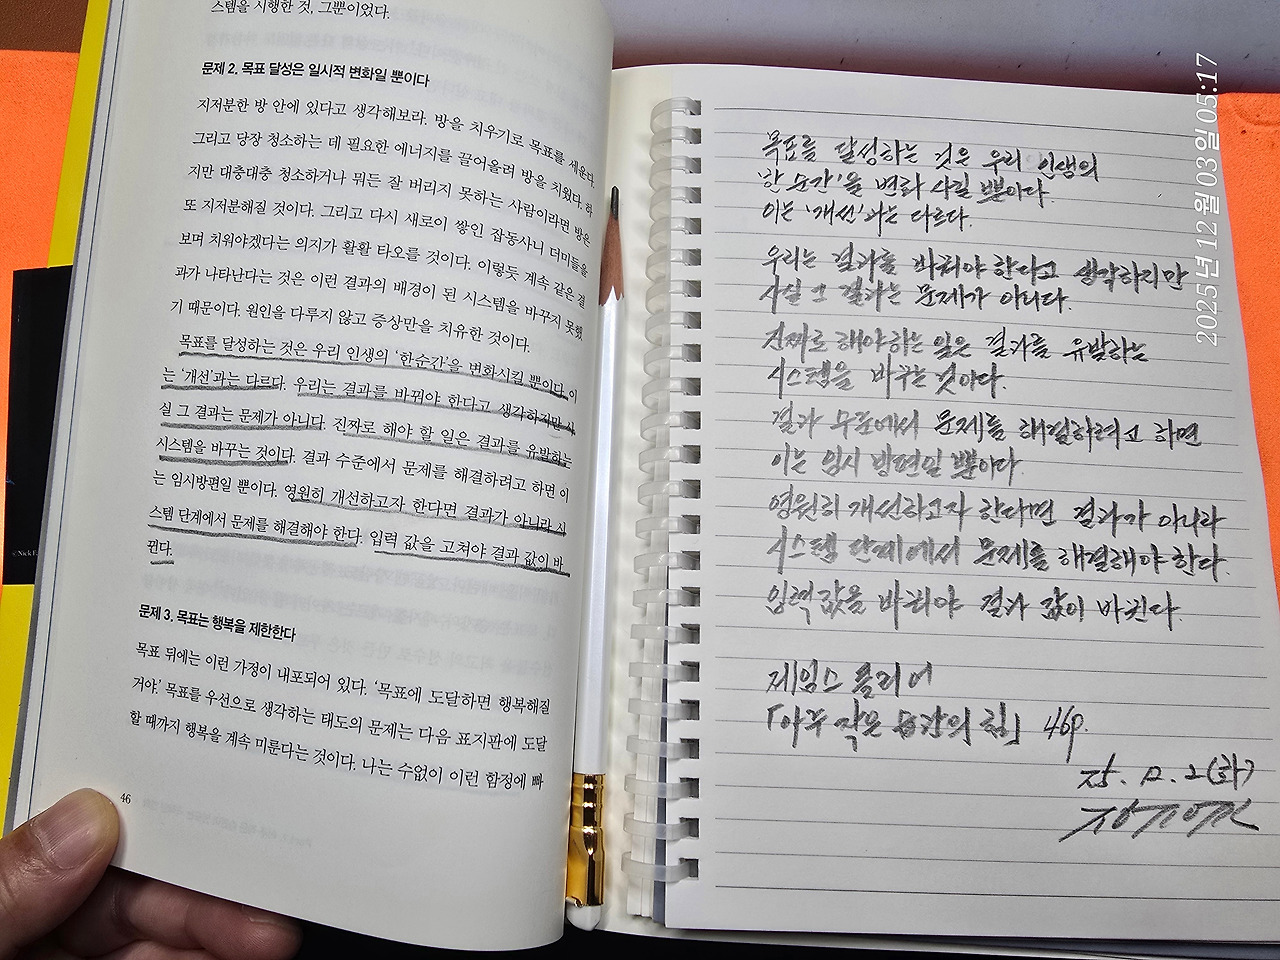 스템을 시행한 것, 그뿐이었다.
문제 2. 목표 달성은 일시적 변화일 뿐이다
지저분한 방 안에 있다고 생각해보라. 방을 치우기로 목표를 세운다.
그리고 당장 청소하는 데 필요한 에너지를 끌어올려 방을 치웠다. 하
지만 대충대충 청소하거나 뭐든 잘 버리지 못하는 사람이라면 방은
또 지저분해질 것이다. 그리고 다시 새로이 쌓인 잡동사니 더미들을
보며 치워야겠다는 의지가 활활 타오를 것이다. 이렇듯 계속 같은 결
과가 나타난다는 것은 이런 결과의 배경이 된 시스템을 바꾸지 못했
기 때문이다. 원인을 다루지 않고 증상만을 치유한 것이다.
목표를 달성하는 것은 우리 인생의 '한순간'을 변화시킬 뿐이다. 이
는 '개선'과는 다르다. 우리는 결과를 바꿔야 한다고 생각하지만 사
실 그 결과는 문제가 아니다. 진짜로 해야 할 일은 결과를 유발하는
시스템을 바꾸는 것이다. 결과 수준에서 문제를 해결하려고 하면 이
는 임시방편일 뿐이다. 영원히 개선하고자 한다면 결과가 아니라 시
스템 단계에서 문제를 해결해야 한다. 입력 값을 고쳐야 결과 값이 바
뀐다.
문제 3. 목표는 행복을 제한한다
목표 뒤에는 이런 가정이 내포되어 있다. '목표에 도달하면 행복해질
거야.' 목표를 우선으로 생각하는 태도의 문제는 다음 표지판에 도달
할 때까지 행복을 계속 미룬다는 것이다. 나는 수없이 이런 함정에 빠
46
목표를 달성하는 것은 우리 인생의
'한 순간'을 변화 시킬 뿐이다.
이는 '개선'과는 다르다.
우리는 결과를 바꿔야 한다고 생각하지만
사실 그 결과는 문제가 아니다.
진짜로 해야하는 일은 결과를 유발하는
시스템을 바꾸는 것이다.
결과 수준에서 문제를 해결하려고 하면
이는 임시 방편일 뿐이다.
영원히 개선하고자 한다면 결과가 아니라
시스템 단계에서 문제를 해결해야 한다.
입력값을 바꿔야 결과 값이 바뀐다.
제임스 클리어
「아주 작은 습관의 힘」 46p.
25. 12. 2 (화)
2025년 12월 03일 05:17
©Nick